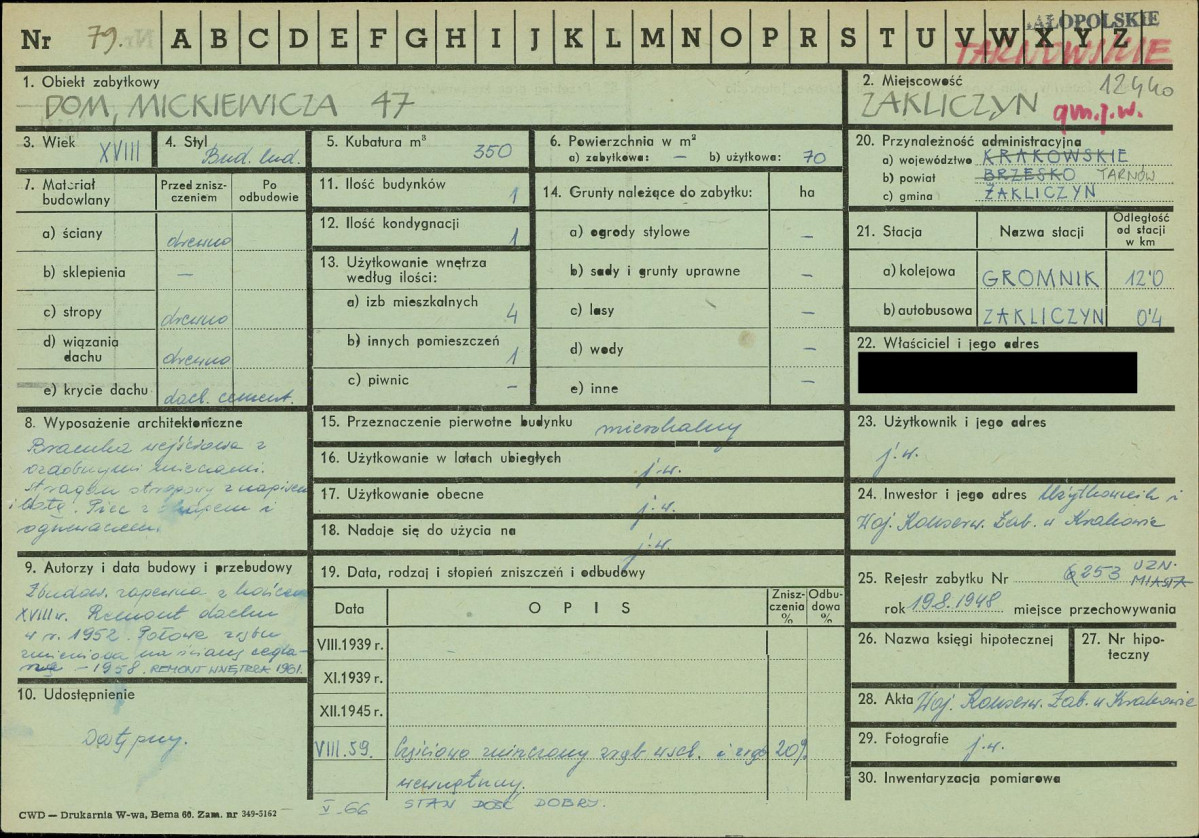 Nr 79. A B C D E F G H I J K L M N O P R S T U V W X Y Z
MAŁOPOLSKIE
TARNOWSKIE
1. Obiekt zabytkowy
DOM, MICKIEWICZA 47
2. Miejscowość 12440
ZAKLICZYN gm.j.w.
3. Wiek XVIII
4. Styl Bud. lud.
5. Kubatura m³ 350
6. Powierzchnia w m²
a) zabytkowa: — b) użytkowa: 70
20. Przynależność administracyjna
a) województwo KRAKOWSKIE
b) powiat BRZESKO TARNÓW
c) gmina ZAKLICZYN
7. Materiał budowlany
Przed zniszczeniem
Po odbudowie
a) ściany drewno
b) sklepienia —
c) stropy drewno
d) wiązania dachu drewno
e) krycie dachu dach. cement.
11. Ilość budynków 1
12. Ilość kondygnacji 1
13. Użytkowanie wnętrza według ilości:
a) izb mieszkalnych 4
b) innych pomieszczeń 1
c) piwnic —
14. Grunty należące do zabytku: ha
a) ogrody stylowe —
b) sady i grunty uprawne —
c) lasy —
d) wody —
e) inne —
21. Stacja Nazwa stacji Odległość od stacji w km
a) kolejowa GROMNIK 12'0
b) autobusowa ZAKLICZYN 0'4
22. Właściciel i jego adres
8. Wyposażenie architektoniczne
Bramka wejściowa z
ozdobnymi
Stragarz stropowy z napisem
i datą. Piec z okapem i
ogniwaczem.
15. Przeznaczenie pierwotne budynku mieszkalny
16. Użytkowanie w latach ubiegłych j.w.
17. Użytkowanie obecne j.w.
18. Nadaje się do użycia na j.w.
23. Użytkownik i jego adres
j.w.
24. Inwestor i jego adres Użytkownik i
Woj. Konserw. Zab. w Krakowie
9. Autorzy i data budowy i przebudowy
Zbudow. zapewne z końcem
XVIII w. Remont dachu
w r. 1952. Połowa zrębu
zmieniona na ścianę cegla-
ną – 1958. REMONT WNĘTRZA 1961.
10. Udostępnienie
Dostępny.
19. Data, rodzaj i stopień zniszczeń i odbudowy
Data OPIS Zniszczenia % Odbudowa %
VIII.1939 r.
XI.1939 r.
XII.1945 r.
VIII.59. Częściowo zniszczony zrąb wsch. i zrąb 20%
wewnętrzny.
V.66 STAN DOŚĆ DOBRY.
25. Rejestr zabytku Nr 253 UZN. MIASTA
rok 19.8.1948 miejsce przechowywania
26. Nazwa księgi hipotecznej
27. Nr hipoteczny
28. Akta Woj. Konserw. Zab. w Krakowie
29. Fotografie j.w.
30. Inwentaryzacja pomiarowa
CWD — Drukarnia W-wa, Bema 60. Zam. nr 349-5162